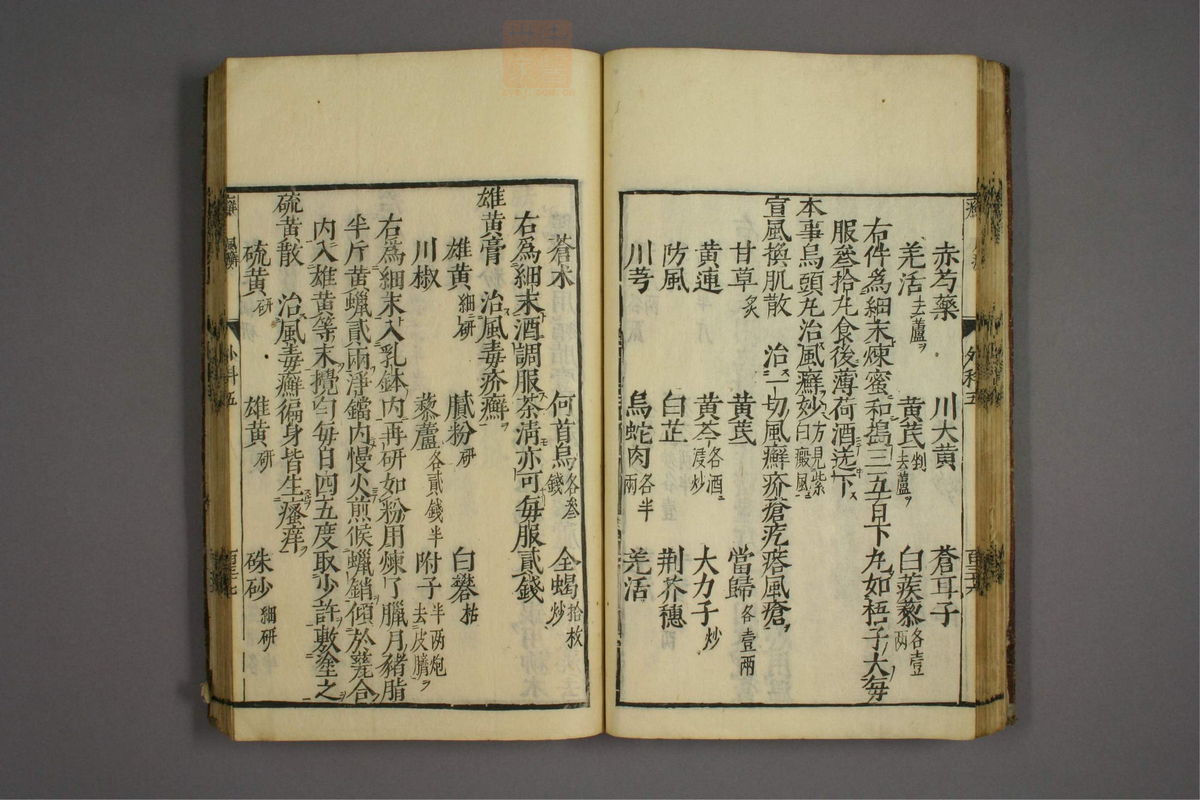 赤芍藥 川大黄 蒼耳子
羌活去蘆 黄芪剉去蘆 白蒺藜各壹兩
右件爲細末煉蜜和搗三五百下丸如梧子大每
服叄拾丸食後薄荷酒送下
本事烏頭丸治風癬妙方見紫白癜風
宣風換肌散 治一切風癬疥瘡疙瘩風瘡
甘草炙 黄芪 當歸各壹兩
黄連 黄芩各酒浸炒 大力子炒
防風 白芷 荆芥穗
川芎 烏蛇肉各半兩 羌活
蒼术 何首烏各叄錢 全蝎拾枚炒
右爲細末酒調服茶清亦可每服貳錢
雄黄膏 治風毒疥癬
雄黄細研 膩粉研 白礬枯
川椒 藜蘆各貳錢半 附子半两炮去皮臍
右爲細末入乳鉢内再研如粉用煉了臘月猪脂
半斤黄蠟貳兩淨鐺内慢火煎候蠟銷傾於甆合
内入雄黄等末攪勻每日四五度取少許敷塗之
硫黄散 治風毒癬徧身皆生瘙痒
硫黄研 雄黄研 硃砂細研
癬 風癬
外科五